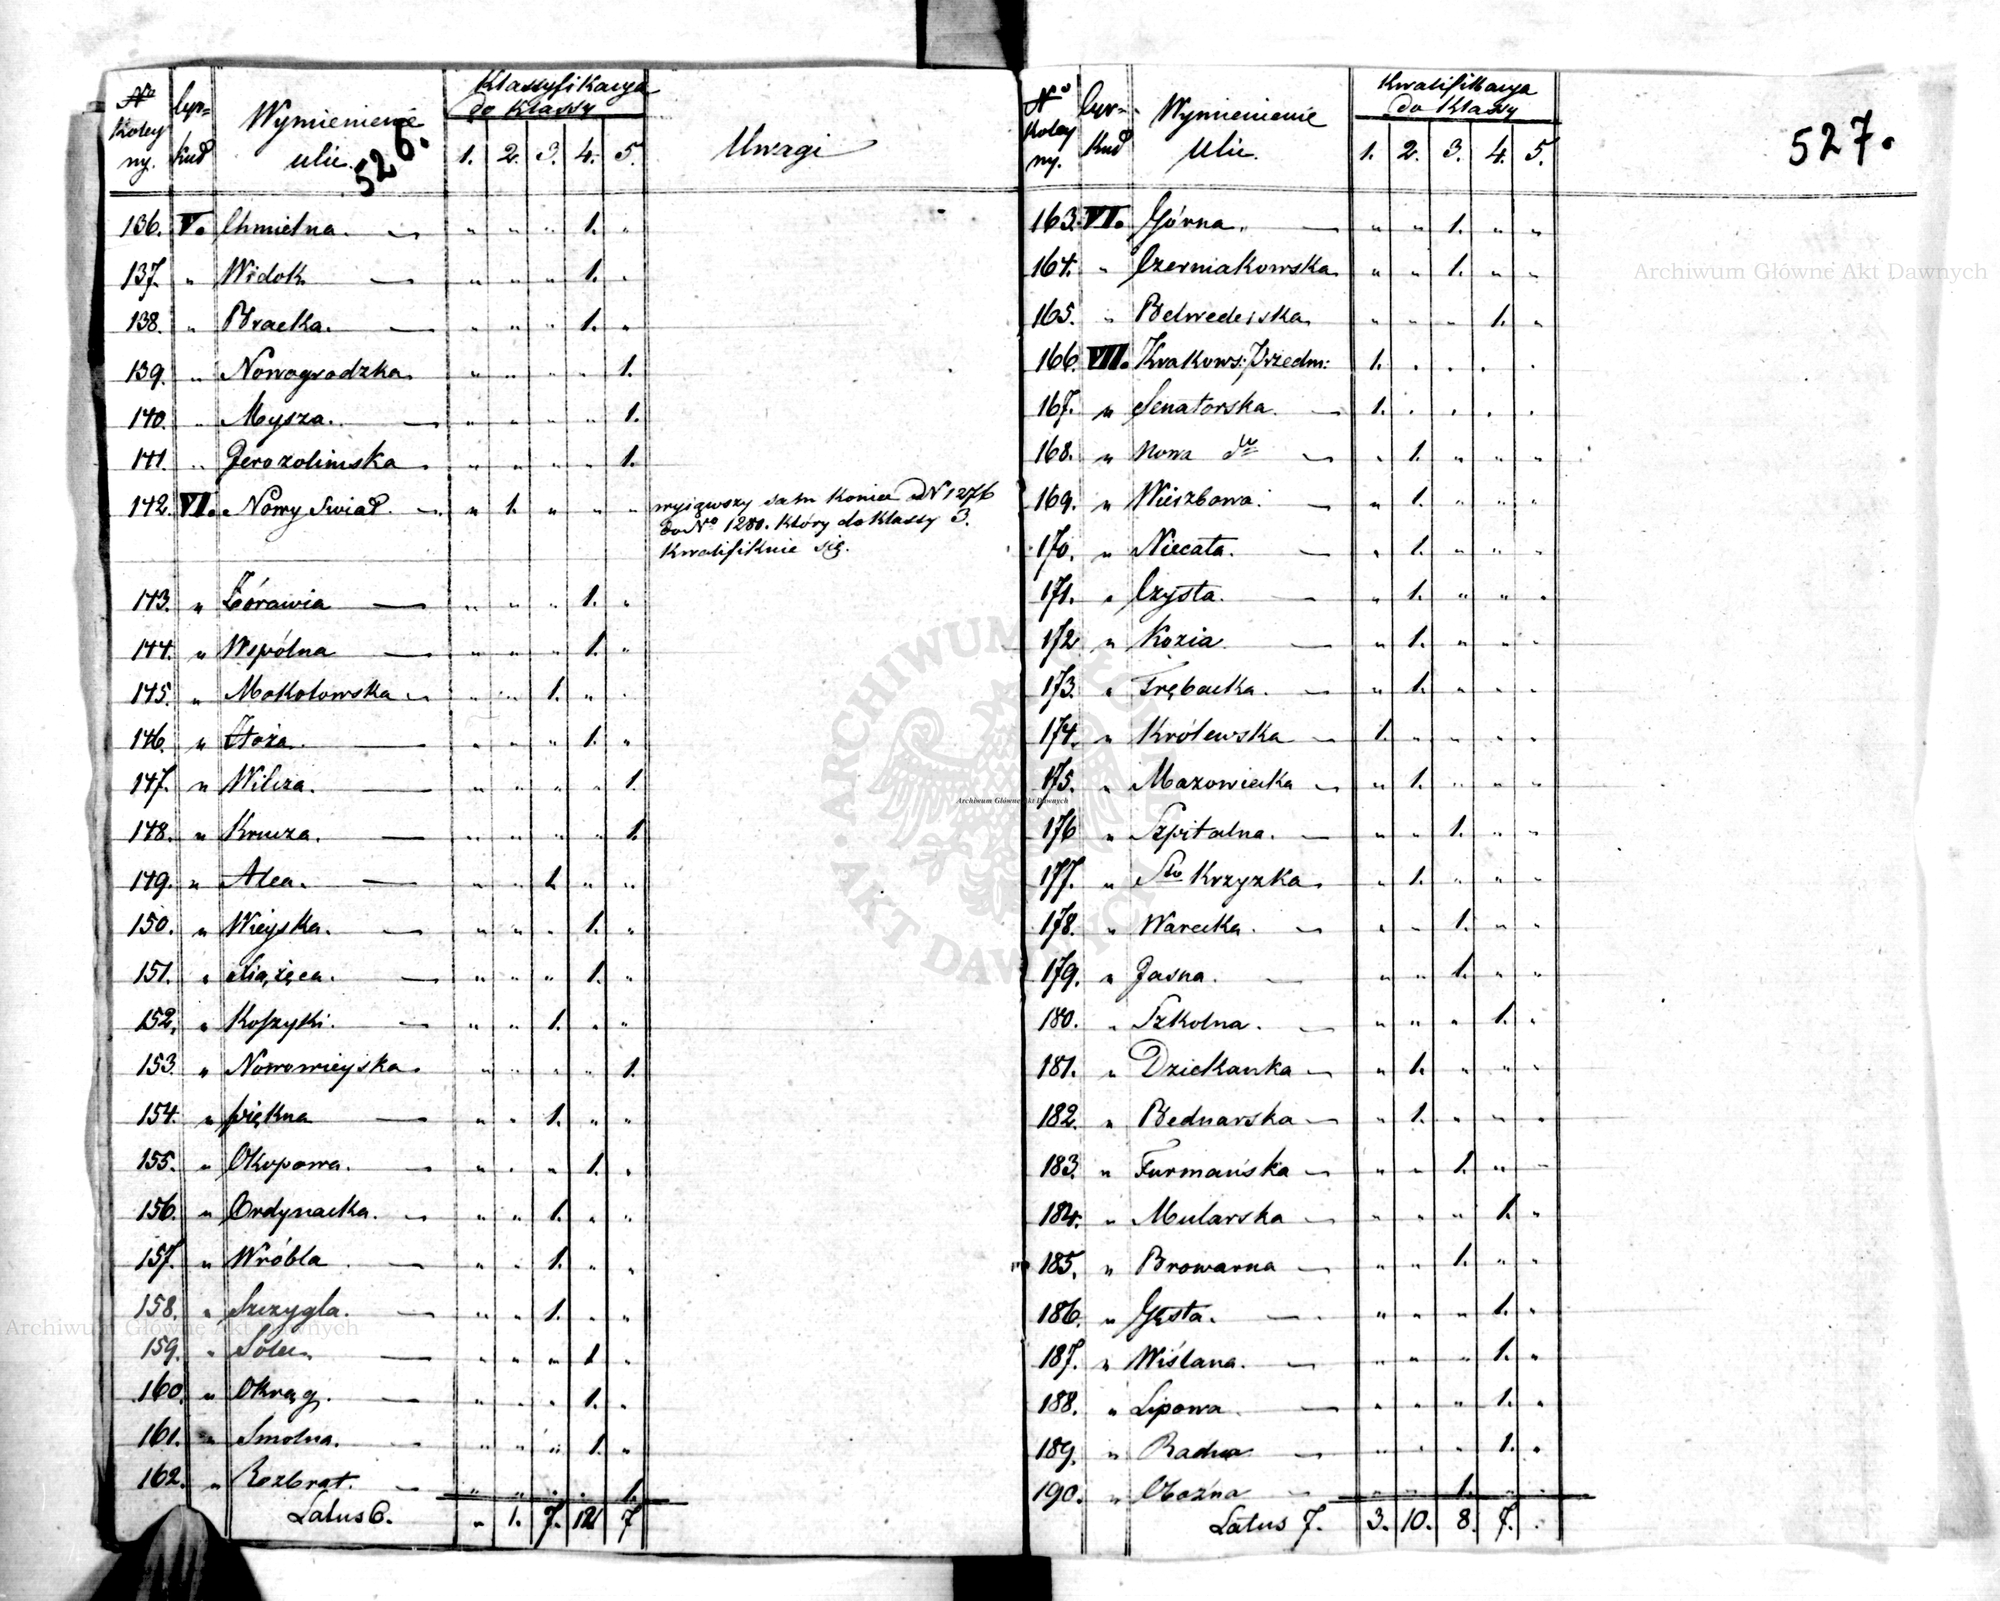 No Koley ny. Cyr= kuł Wymienienie ulic. Klassyfikacya do klassy 1. 2. 3. 4. 5. Uwagi
526.
136. V. Chmielna. " " " 1. "
137. " Widok " " " 1. "
138. " Bracka. " " " 1. "
139. " Nowogrodzka. " " " " 1.
140. " Mysza. " " " " 1.
141. " Jerozolimska " " " " 1.
142. VI. Nowy Swiat. " 1. " " " wyiąwszy sam koniec od N 1276
do No 1280. który do klassy 3.
kwalifikuie się.
143. " Żórawia " " " 1. "
144. " Wspólna " " " 1. "
145. " Mokotowska " " 1. " "
146. " Hoża. " " " 1. "
147. " Wilcza. " " " " 1.
148. " Krucza. " " " " 1.
149. " Alea. " " 1. " "
150. " Wieyska. " " " 1. "
151. " Xiążęca. " " " 1. "
152. " Koszyki. " " 1. " "
153. " Nowowieyska. " " " " 1.
154. " piękna " " 1. " "
155. " Okopowa. " " " 1. "
156. " Ordynacka. " " 1. " "
157. " Wróbla " " 1. " "
158. " Szczygla. " " 1. " "
159. " Solec. " " " 1 "
160. " Okrąg. " " " 1. "
161. " Smolna. " " " 1. "
162. " Rozbrat. " " " " 1.
Latus 6. " 1. 7. 12 7
No Koley ny. Cyr= kuł Wymienienie Ulic. Kwalifikacya do klassy 1. 2. 3. 4. 5.
527.
163. VI. Górna. " " 1. " "
164. " Czerniakowska. " " 1. " "
165. " Belwederska. " " " 1. "
166. VII. Krakows: Przedm: 1. " " " "
167. " Senatorska. 1. " " " "
168. " Nowa dto " 1. " " "
169. " Wierzbowa. " 1. " " "
170. " Niecała. " 1. " " "
171. " Czysta. " 1. " " "
172 " Kozia " 1. " " "
173. " Trębacka. " 1. " " "
174. " Królewska 1. " " " "
175. " Mazowiecka " 1. " " "
176 " Szpitalna. " " 1. " "
177. " Sto Krzyzka. " 1. " " "
178. " Warecka. " " 1. " "
179. " Jasna. " " 1. " "
180. " Szkolna. " " " 1. "
181. " Dziekanka " 1. " " "
182. " Bednarska " 1. " " "
183. " Furmańska " " 1. " "
184. " Mularska " " " 1. "
185. " Browarna " " 1. " "
186. " Gęsta. " " " 1. "
187. " Wiślana. " " " 1. "
188. " Lipowa. " " " 1. "
189. " Radna " " " 1. "
190. " Oboźna " " 1. " "
Latus 7. 3. 10. 8. 7. "
Archiwum Główne Akt Dawnych
Archiwum Główne Akt Dawnych
Archiwum Główne Akt Dawnych